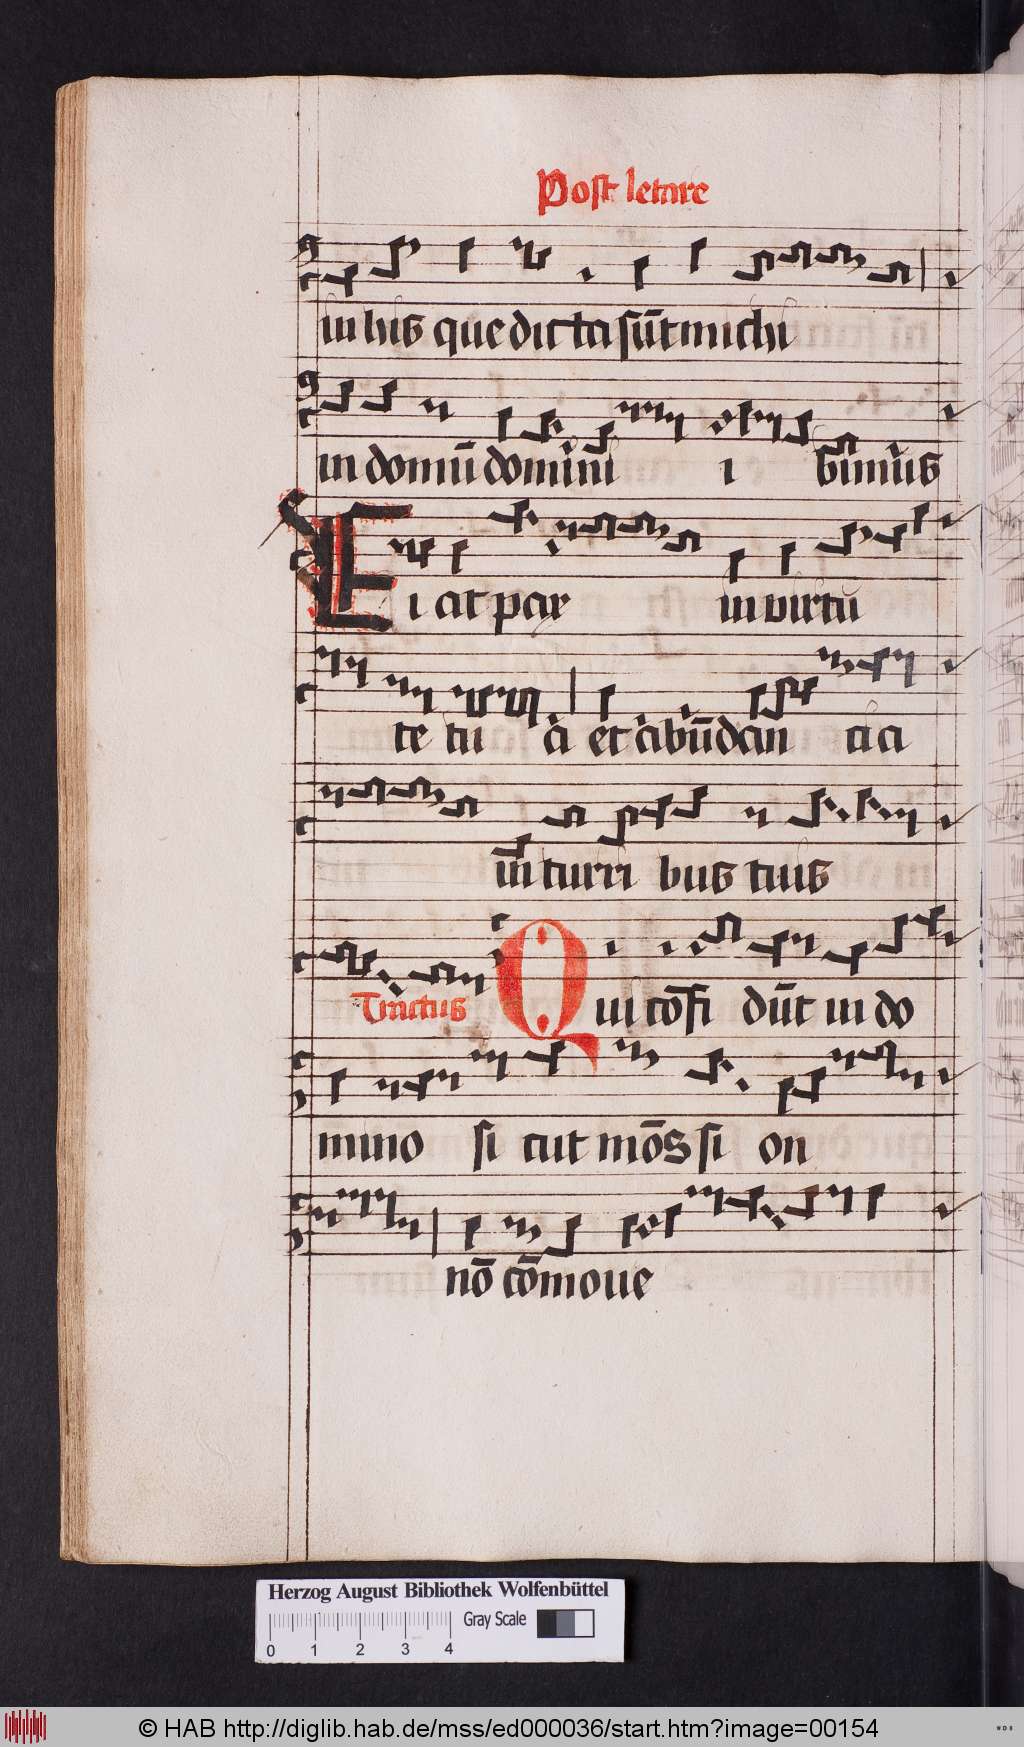 Post letare
in his que dicta sūt michi
in domū domini i bimus
Fiat pax in virtu
te tu a et abūdan cia
in turri bus tuis
Tractus Qui cōfi dūt in do
mino si cut mōs si on
nō cōmoue
Herzog August Bibliothek Wolfenbüttel
Gray Scale
0 1 2 3 4
© HAB http://diglib.hab.de/mss/ed000036/start.htm?image=00154